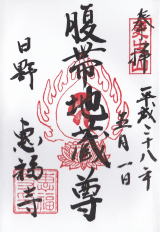 奉拝
平成二十八年
五月一日
腹帯地蔵尊
日野
恵福寺